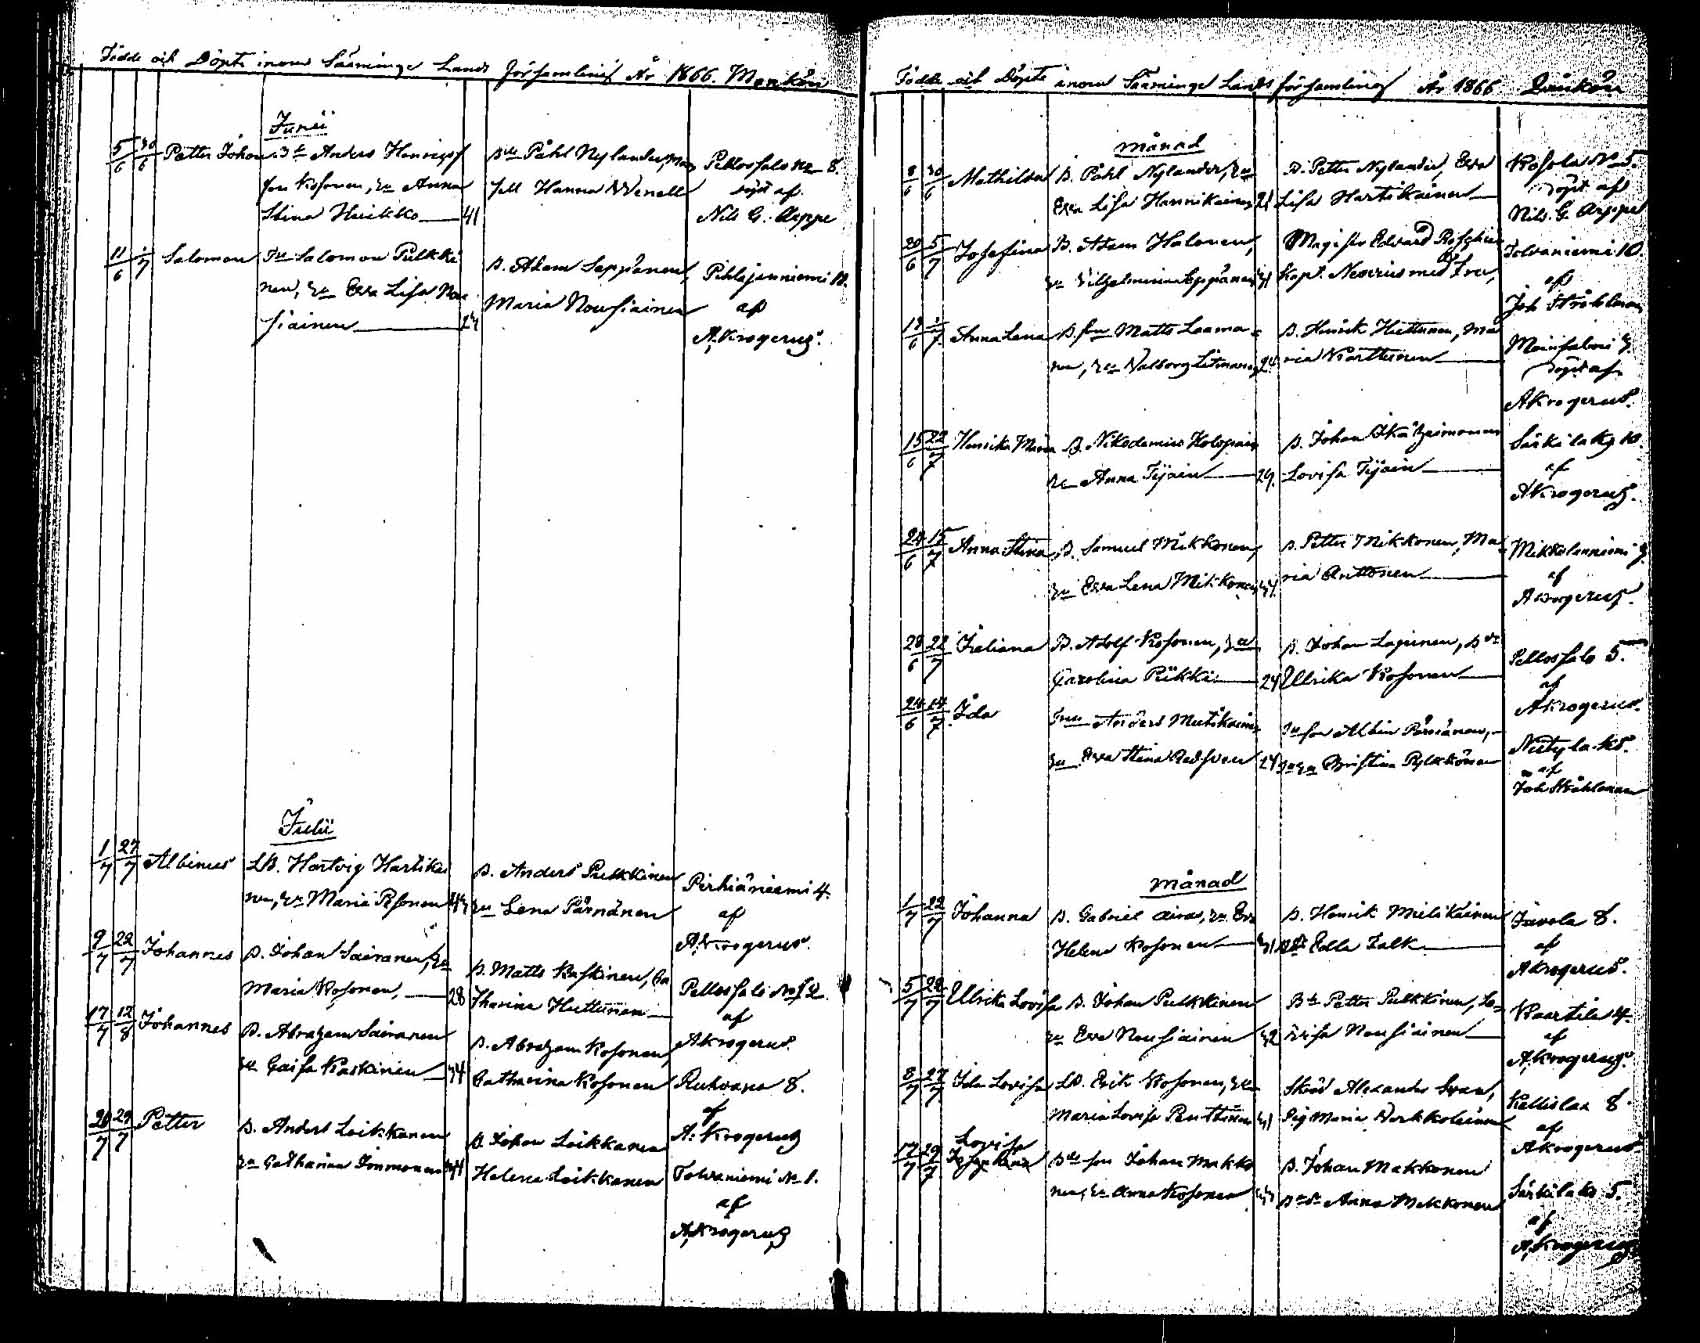 Födde och Döpte inom Sääminge Lands församling År 1866. Mankön
Junii
5/6 30/6 Petter Johan Anders Henrigs
son Kosonen, Anna
Stina Huikko 41
Påhl Nylander,
Hanna
Pellossalo No 8.
döpt af
Nils G. Arppe
11/6 1/7 Salomon Salomon Pulkki
nen, hu Eva Lisa Nou
siainen 24
B. Adam Seppänen,
Maria Nousiainen
Pihlajaniemi 10.
af
A. Krogerus.
Julii
1/7 27/7 Albinus LB. Hartvig Hartikai
nen, hu Maria Kosonen
B. Anders Pulkkinen
hu Lena Pärnänen
Pirhiäniemi 4.
af
A. Krogerus.
9/7 22/7 Johannes B. Johan Sairanen, hu
Maria Kosonen, 28
B. Matts Kaskinen, Ca
tharina Huttunen
Pellossalo No 12.
af
A Krogerus.
17/7 12/8 Johannes B. Abraham Sairanen
hu Caisa Kaskinen 34
B. Abraham Kosonen,
Catharina Kosonen
Ruhvana 8.
af
A. Krogerus
20/7 29/7 Petter B. Anders Loikkanen
hu Catharina Immonen
B. Johan Loikkanen
Helena Loikkanen
Tolvaniemi No 1.
af
A. Krogerus
Födde och Döpte inom Sääminge Lands församling År 1866 Qvinkön
månad
8/6 30/6 Mathilda B. Påhl Nylander, hu
Eva Lisa Hannikainen 21
B. Petter Nylander, Eva
Lisa Hartikainen
Kosola No 5.
döpt af
Nils G. Arppe
20/6 5/7 Josefina B. Adam Halonen,
hu Vilhelmina Seppänen 31
Magister Edvard
Kapt. med Fru,
Tolvaniemi 10.
af
Joh Stråhlman
19/6 1/7 Anna Lena B. son Matts Laama
nen, hu Valborg 24
B. Henrik Huttunen, Ma
ria Karttunen
Moinsalmi 7.
döpt af
A Krogerus.
15/6 22/7 Henrika Maria B. Nikodemus Holopain
hu Anna Tijain 29.
B. Johan
Lovisa Tijain
Särkilaks 10
af
A Krogerus.
24/6 15/7 Anna Stina B. Samuel Mikkonen,
hu Eva Lena Mikkonen 34
B. Petter Mikkonen, Ma
ria Anttonen
Mikkolanniemi 9.
af
A Krogerus.
28/6 22/7 Juliana B. Adolf Kosonen, hu
Carolina Pukki 24
B. Johan Laginen,
Ullrika Kosonen
Pellossalo 5.
af
A Krogerus.
24/6 14/7 Ida Anders Mutikainen
hu Eva Stina 24
Albin Pärnänen,
Christina Pylkkönen
af
Joh Stråhlman
månad
1/7 22/7 Johanna B. Gabriel Aira, hu Eva
Helena Kosonen 31
B. Henrik Mielikäinen
Edla Falk
Juvola 8.
af
A Krogerus.
5/7 22/7 Ullrika Lovisa B. Johan Pulkkinen
hu Eva Nousiainen 32
Petter Pulkkinen, Lo
visa Nousiainen
Kaartila 4.
af
A. Krogerus.
8/7 27/7 Ida Lovisa LB. Erik Kosonen, hu
Maria Lovisa Penttinen 31
Alexander Svan,
Pig Maria
Kallislax 8.
af
A Krogerus
17/7 29/7 Lovisa
Josephina son Johan Makko
nen, hu Anna Kosonen
B. Johan Makkonen
Anna Makkonen
Särkilaks 5.
af
A. Krogerus.